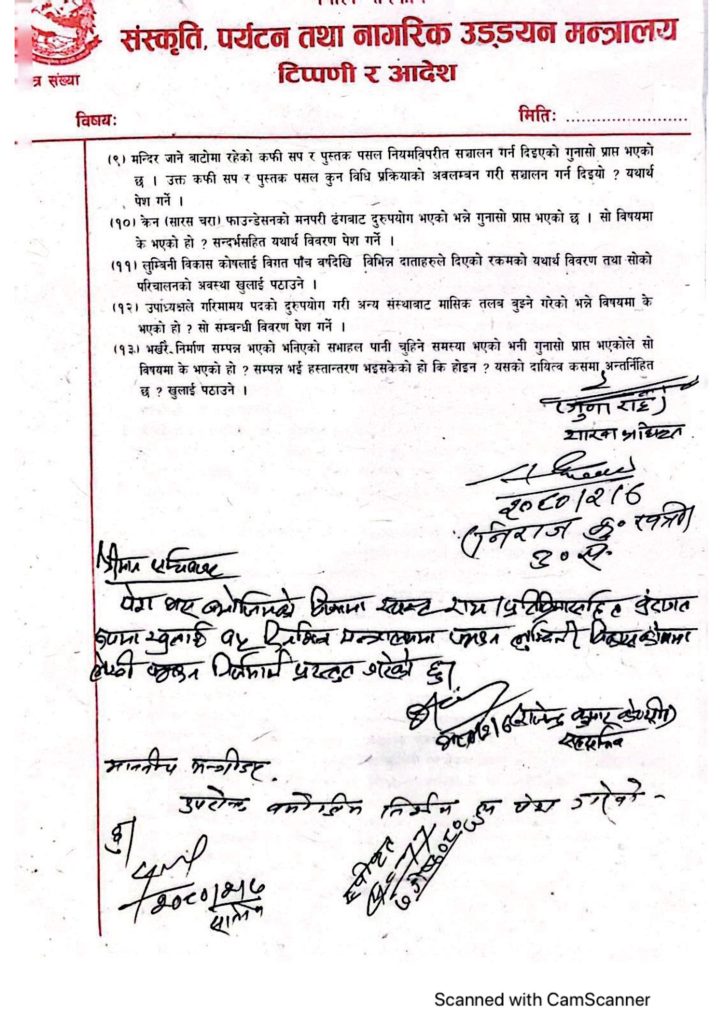 संस्कृति, पर्यटन तथा नागरिक उड्डयन मन्त्रालय
त्र संख्या
टिप्पणी र आदेश
विषयः
मितिः ........................
(९) मन्दिर जाने बाटोमा रहेको कफी सप र पुस्तक पसल नियमविपरीत सञ्चालन गर्न दिइएको गुनासो प्राप्त भएको
छ । उक्त कफी सप र पुस्तक पसल कुन विधि प्रक्रियाको अवलम्बन गरी सञ्चालन गर्न दिइयो ? यथार्थ
पेश गर्ने ।
(१०) क्रेन (सारस चरा) फाउन्डेसनको मनपरी ढंगबाट दुरुपयोग भएको भन्ने गुनासो प्राप्त भएको छ । सो विषयमा
के भएको हो ? सन्दर्भसहित यथार्थ विवरण पेश गर्ने ।
(११) लुम्बिनी विकास कोषलाई विगत पाँच वर्षदेखि विभिन्न दाताहरुले दिएको रकमको यथार्थ विवरण तथा सोको
परिचालनको अवस्था खुलाई पठाउने ।
(१२) उपाध्यक्षले गरिमामय पदको दुरुपयोग गरी अन्य संस्थाबाट मासिक तलब बुझ्ने गरेको भन्ने विषयमा के
भएको हो ? सो सम्बन्धी विवरण पेश गर्ने ।
(१३) भर्खरै निर्माण सम्पन्न भएको भनिएको सभाहल पानी चुहिने समस्या भएको भनी गुनासो प्राप्त भएकोले सो
विषयमा के भएको हो ? सम्पन्न भई हस्तान्तरण भइसकेको हो कि होइन ? यसको दायित्व कसमा अन्तर्निहित
छ ? खुलाई पठाउने ।
शाखा अधिकृत
२०८०/२/६
(निराज कु. खत्री)
उ.स.
पेश भए बमोजिमको
लुम्बिनी विकास कोषमा
प्रस्तुत गरेको छु।
सहसचिव
माननीय मन्त्रीज्यू,
उपरोक्त बमोजिम निर्णय हुन पेश गरेको
छु।
स्वीकृत
२०८०/२/७
सचिव
Scanned with CamScanner